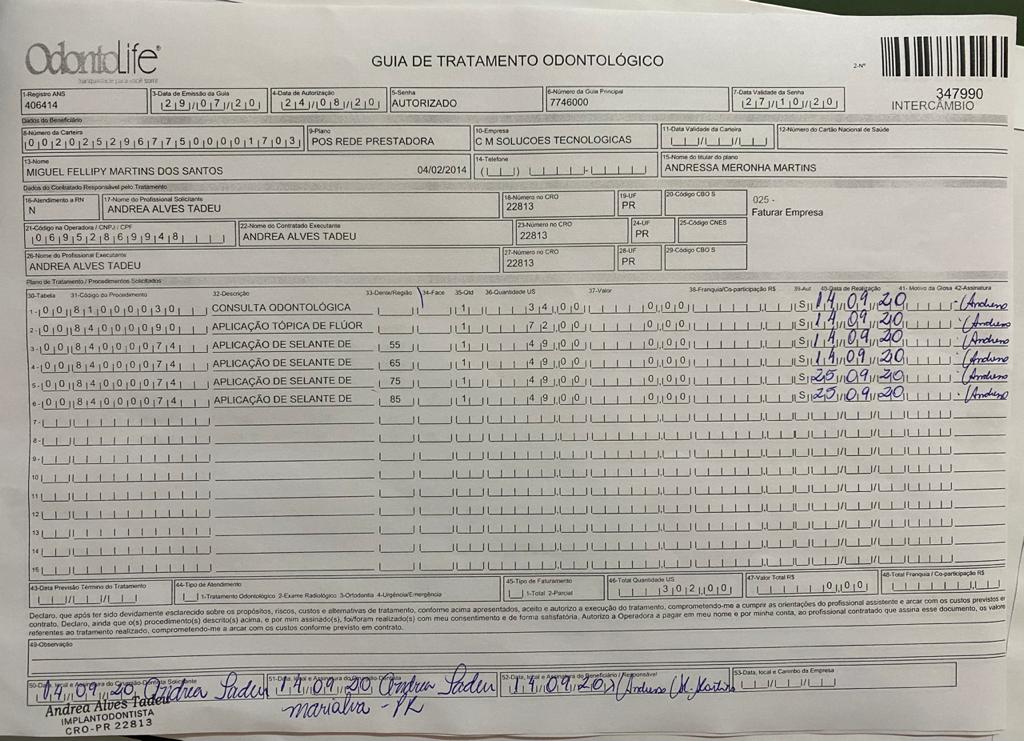 OdontoLife®
tranquilidade para você sorrir
GUIA DE TRATAMENTO ODONTOLÓGICO
2-Nº
347990
INTERCÂMBIO
1-Registro ANS
406414
3-Data de Emissão da Guia
29/07/20
4-Data de Autorização
24/08/20
5-Senha
AUTORIZADO
6-Número da Guia Principal
7746000
7-Data Validade da Senha
27/10/20
Dados do Beneficiário
8-Número da Carteira
00202529677500001703
9-Plano
POS REDE PRESTADORA
10-Empresa
C M SOLUCOES TECNOLOGICAS
11-Data Validade da Carteira
12-Número do Cartão Nacional de Saúde
13-Nome
MIGUEL FELLIPY MARTINS DOS SANTOS 04/02/2014
14-Telefone
15-Nome do titular do plano
ANDRESSA MERONHA MARTINS
Dados do Contratado Responsável pelo Tratamento
16-Atendimento a RN
N
17-Nome do Profissional Solicitante
ANDREA ALVES TADEU
18-Número no CRO
22813
19-UF
PR
20-Código CBO S
025 -
Faturar Empresa
21-Código na Operadora / CNPJ / CPF
06952869948
22-Nome do Contratado Executante
ANDREA ALVES TADEU
23-Número no CRO
22813
24-UF
PR
25-Código CNES
26-Nome do Profissional Executante
ANDREA ALVES TADEU
27-Número no CRO
22813
28-UF
PR
29-Código CBO S
Plano de Tratamento / Procedimentos Solicitados
30-Tabela 31-Código do Procedimento 32-Descrição 33-Dente/Região 34-Face 35-Qtd 36-Quantidade US 37-Valor 38-Franquia/Co-participação R$ 39-Aut 40-Data de Realização 41-Motivo da Glosa 42-Assinatura
1- 00 81000030 CONSULTA ODONTOLÓGICA 1 34,00 0,00 S 14/09/20
2- 00 84000090 APLICAÇÃO TÓPICA DE FLÚOR 1 72,00 0,00 S 14/09/20
3- 00 84000074 APLICAÇÃO DE SELANTE DE 55 1 49,00 0,00 S 14/09/20
4- 00 84000074 APLICAÇÃO DE SELANTE DE 65 1 49,00 0,00 S 14/09/20
5- 00 84000074 APLICAÇÃO DE SELANTE DE 75 1 49,00 0,00 S 25/09/20
6- 00 84000074 APLICAÇÃO DE SELANTE DE 85 1 49,00 0,00 S 25/09/20
7-
8-
9-
10
11
12
13
14
15
43-Data Previsão Término do Tratamento
44-Tipo de Atendimento
1-Tratamento Odontológico 2-Exame Radiológico 3-Ortodontia 4-Urgência/Emergência
45-Tipo de Faturamento
1-Total 2-Parcial
46-Total Quantidade US
302,00
47-Valor Total R$
0,00
48-Total Franquia / Co-participação R$
Declaro, que após ter sido devidamente esclarecido sobre os propósitos, riscos, custos e alternativas de tratamento, conforme acima apresentados, aceito e autorizo a execução do tratamento, comprometendo-me a cumprir as orientações do profissional assistente e arcar com os custos previstos em
contrato. Declaro, ainda que o(s) procedimento(s) descrito(s) acima, e por mim assinado(s), foi/foram realizado(s) com meu consentimento e de forma satisfatória. Autorizo a Operadora a pagar em meu nome e por minha conta, ao profissional contratado que assina esse documento, os valores
referentes ao tratamento realizado, comprometendo-me a arcar com os custos conforme previsto em contrato.
49-Observação
14/09/20 Andrea Tadeu
14/09/20 Andrea Tadeu
Marialva - PR
52-Data, local e Assinatura do Beneficiário / Responsável
14/09/20
53-Data, local e Carimbo da Empresa
Andrea Alves Tadeu
IMPLANTODONTISTA
CRO-PR 22813